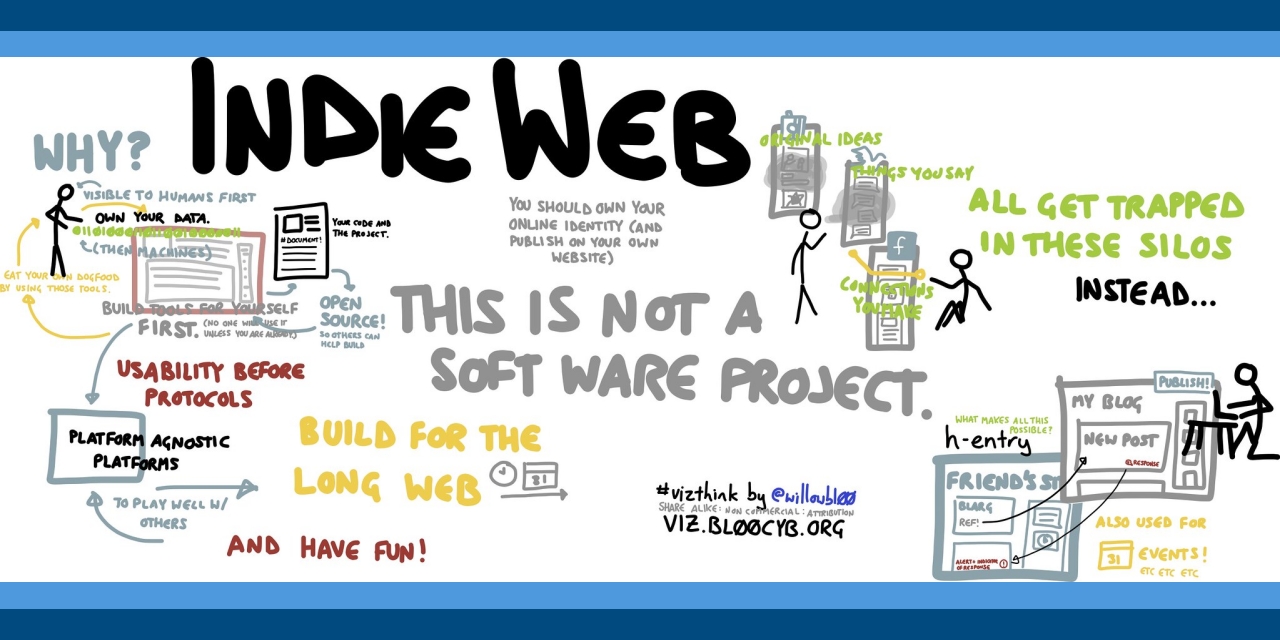 INDIE WEB
WHY?
VISIBLE TO HUMANS FIRST
OWN YOUR DATA.
(THEN MACHINES)
EAT YOUR OWN DOGFOOD
BY USING THOSE TOOLS.
#DOCUMENT!
YOUR CODE AND
THE PROJECT.
BUILD TOOLS FOR YOURSELF
FIRST. (NO ONE WILL USE IT
UNLESS YOU ARE ALREADY)
OPEN
SOURCE!
SO OTHERS CAN
HELP BUILD
USABILITY BEFORE
PROTOCOLS
PLATFORM AGNOSTIC
PLATFORMS
TO PLAY WELL W/
OTHERS
BUILD FOR THE
LONG WEB
31
AND HAVE FUN!
YOU SHOULD OWN YOUR
ONLINE IDENTITY (AND
PUBLISH ON YOUR OWN
WEBSITE)
THIS IS NOT A
SOFTWARE PROJECT.
#vizthink by @willowbl00
SHARE ALIKE: NON COMMERCIAL: ATTRIBUTION
VIZ.BL00CYB.ORG
ORIGINAL IDEAS
THINGS YOU SAY
f
CONNECTIONS
YOU MAKE
ALL GET TRAPPED
IN THESE SILOS
INSTEAD...
PUBLISH!
MY BLOG
NEW POST
@RESPONSE
WHAT MAKES ALL THIS
POSSIBLE?
h-entry
FRIEND'S
BLARG
REF!
OF RESPONSE
ALSO USED FOR
31
EVENTS!
ETC ETC ETC